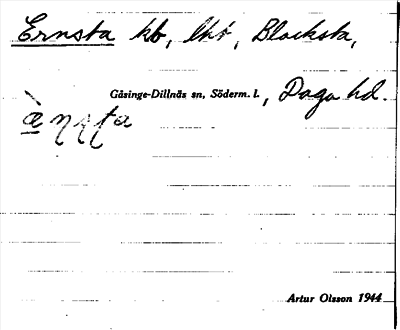 Ernsta kb, lht, Blacksta,
Gåsinge-Dillnäs sn, Söderm. l., Daga hd.
Artur Olsson 1944